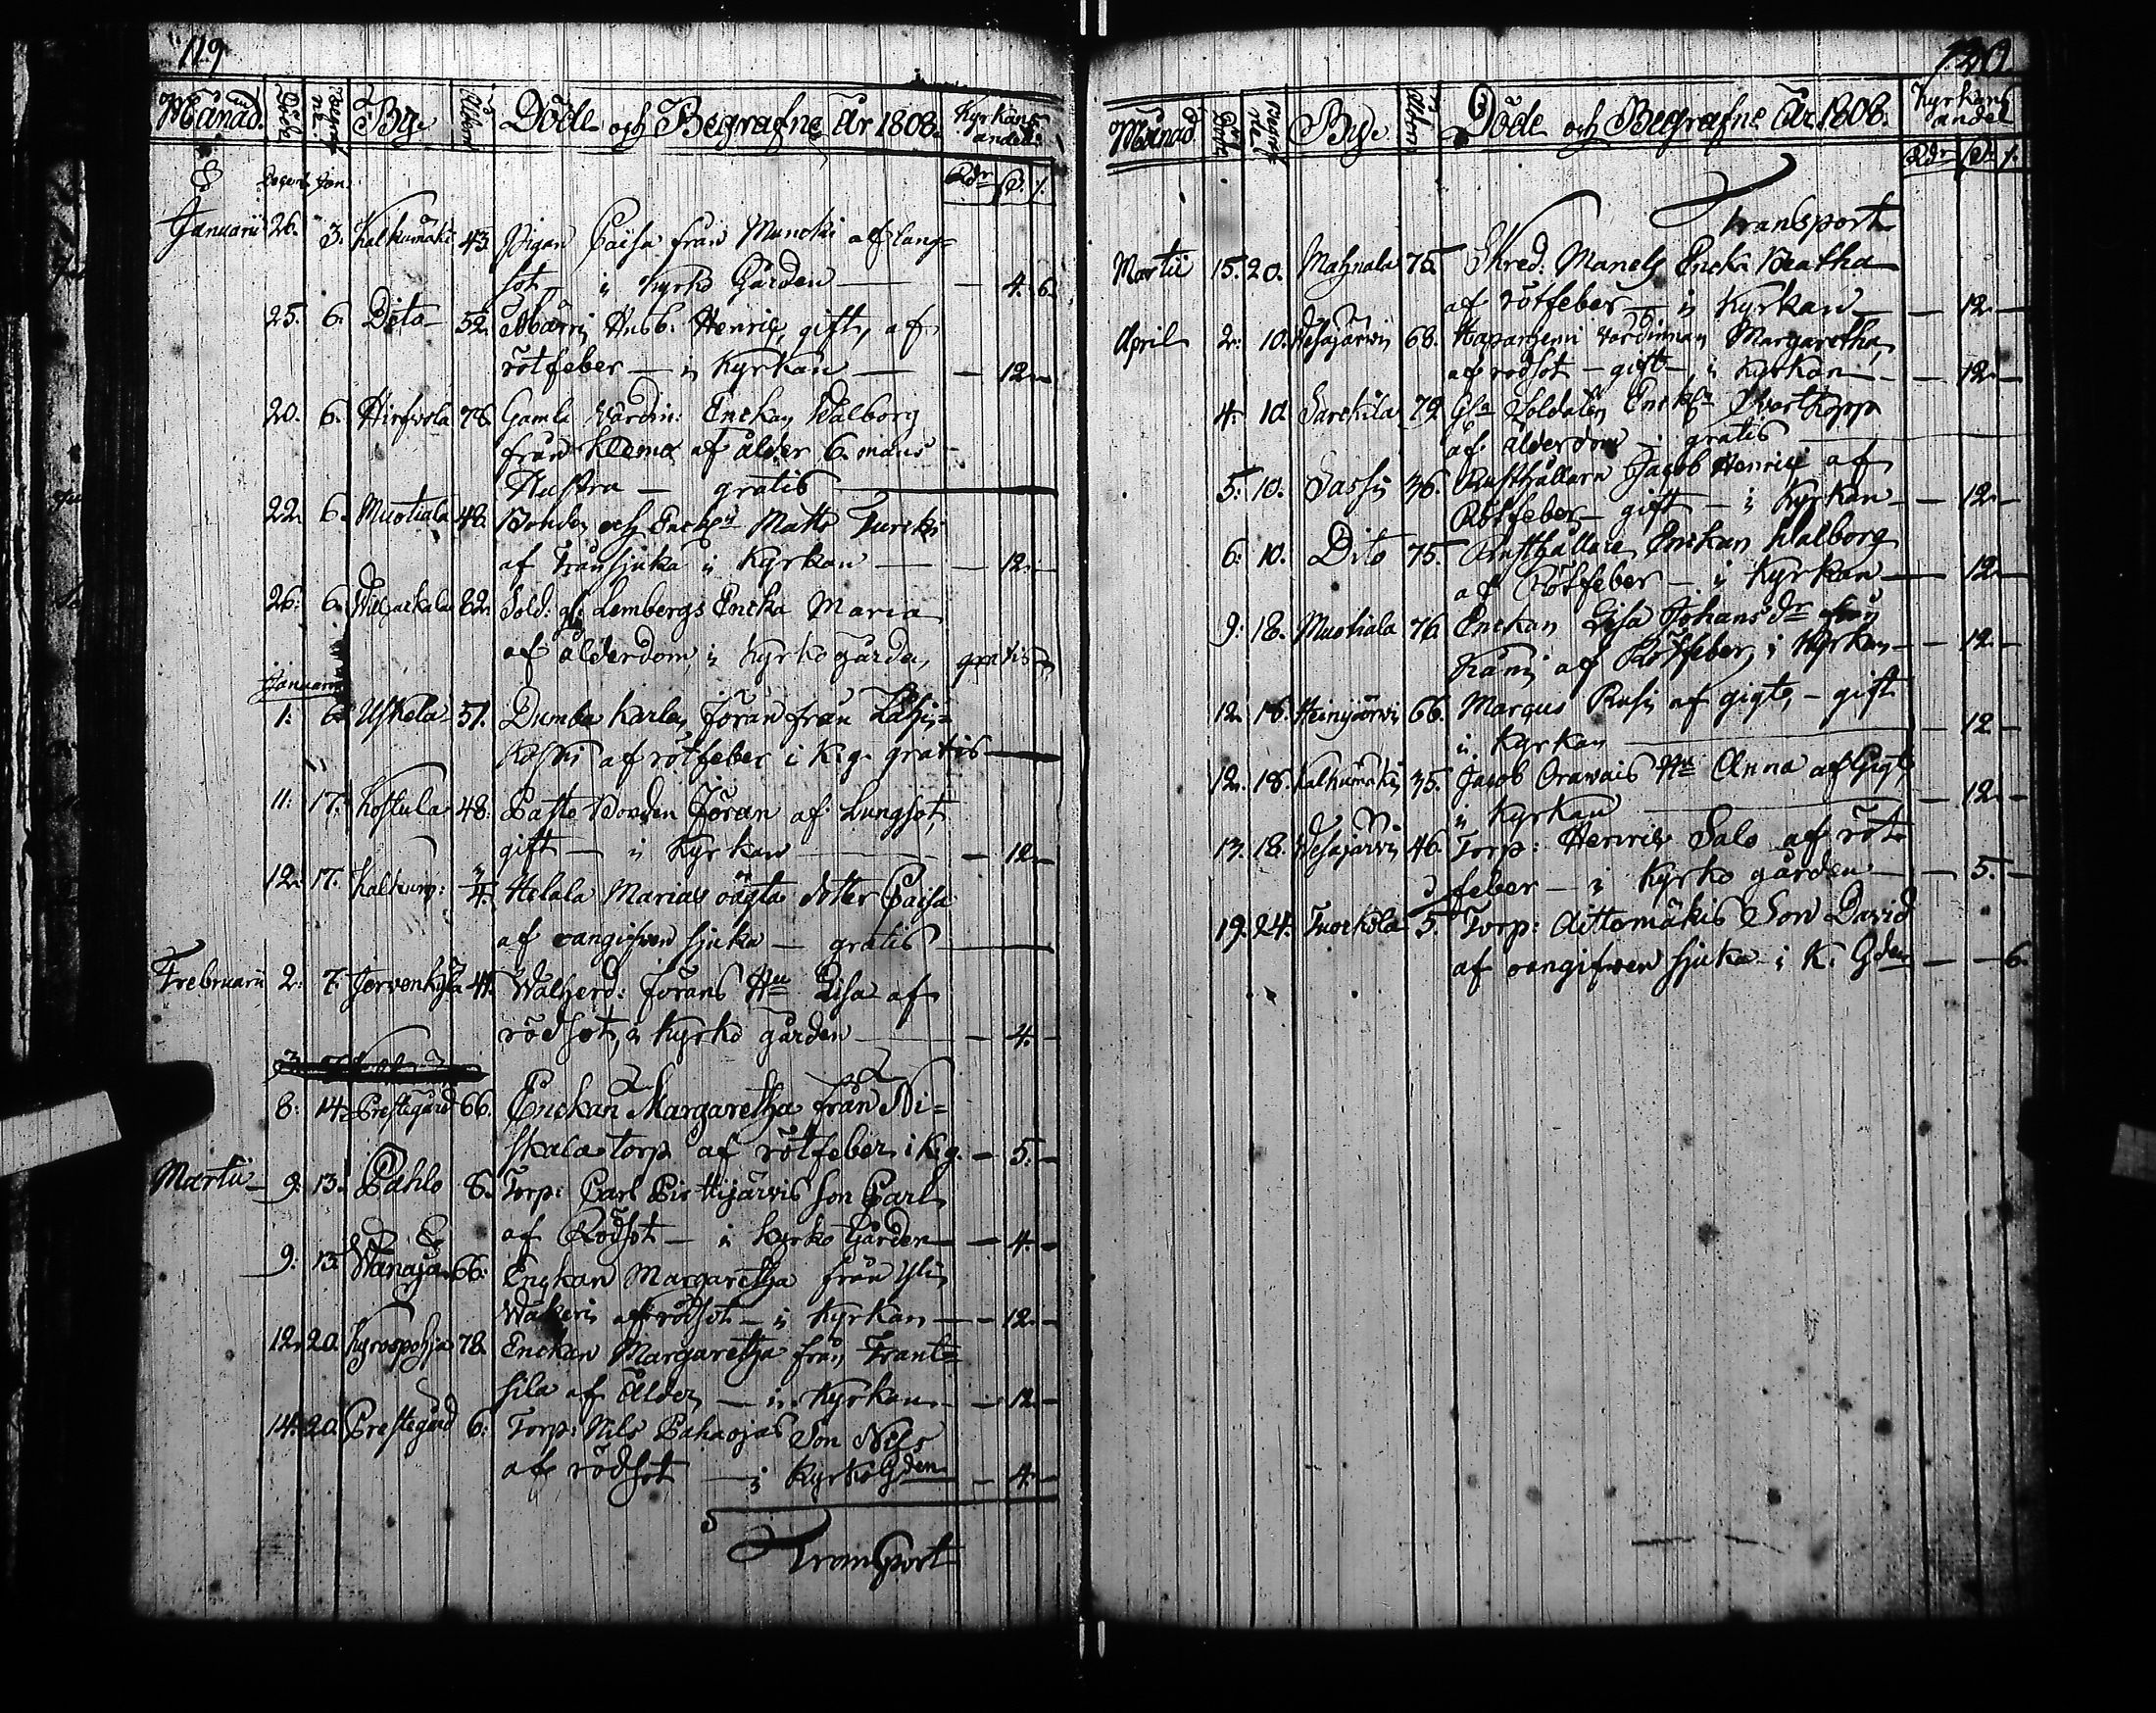 119
Månad. Döde Begrafne Bye Åldern Döde och Begrafne År 1808. Kyrkans andel:
Rdr ß. r.
Decemb. Jan.
Januarii 26. 3. Kalkumäki 43. Pigan Caisa från Muncki af lung=
sot i Kyrko Gården — — 4. 6.
25. 6. Dito 52. Märri Husb. Henric, gift, af
rötfeber — i Kyrkan — — 12. —
20. 6. Hirfvola 76. Gamla Värdin: Enckan Walborg
från Klemo af ålder 6. mans
Hustru — gratis —
22. 6. Muotiala 48. Bonden och Enckl. Matts Turcki
af Tränsjuka i Kyrkan — — 12. —
26. 6. Wiljackala 82. Sold: gl: Lembergs Encka Maria
af ålderdom, i Kyrko gården, gratis
Januarii
1: 6. Uskela 51. Dumba Karlen Jöran från Lähi=
koski af rötfeber i K.g. gratis —
11: 17. Kostula 48. Patto Bonden Jöran af Lungsot,
gift — i Kyrkan — — 12. —
12. 17. Kalkum: 4. Helala Marias oägta dotter Caisa
af oangifven sjuka — gratis —
Februarii 2: 7. Järvenkylä 44. Walherd: Jörans Hu Lisa af
rödsot, i Kyrko gården — — 4. —
8: 14. Prestegård 66. Enckan Margaretha från Ni=
skala torp af rötfeber i K.g. — 5. —
Martii 9. 13. Pahlo 8. Torp: Carl Pirttijärvis son Carl
af Rödsot — i Kyrko Gården — — 4. —
9: 13. Wanaja 66: Enckan Margaretha från Yli
Wäkeri af rödsot — i Kyrkan — — 12. —
12. 20. Kyröspohja 78. Enckan Margaretha från Frant=
sila af Ålder — i Kyrkan — — 12. —
14. 20. Prestegård 6. Torp: Nils Pahaojas Son Nils
af rödsot — i KyrkoGden — 4. —
Transport
120
Månad Döde Begrafne Bye Åldern Döde och Begrafne År 1808. Kyrkans andel
Rdr ß. r.
Transport
Martii 15. 20. Mahnala 75. Skred: Manels Encka Beatha
af rötfeber — i Kyrkan — — 12. —
April 2. 10. Wesajärvi 68. Haparhemi värdinnan Margaretha,
af rödsot — gift — i Kyrkan — — 12. —
4. 10. Sarckila 79. Gla Soldaten Enckl. Qvartkopp
af ålderdom — gratis —
5. 10. Sassi 36. Rusthållarn Jacob Henric af
Rötfeber — gift — i Kyrkan — — 12. —
6. 10. Dito 75. Rusthållare Enckan Walborg
af Rötfeber — i Kyrkan — — 12. —
9: 18. Muotiala 76. Enckan Lisa Johans dr från
Käni af Rötfeber, i Kyrkan — — 12. —
12. 18. Heinijärvi 66. Marcus Rusi af gigt, — gift
i Kyrkan — — 12. —
12. 18. Kalkumäki 35. Jacob Oravais Hu Anna af Gigt
i Kyrkan — — 12. —
13. 18. Wesajärvi 46. Torp: Henric Salo af röt=
feber — i Kyrko gården — — 5. —
19. 24. Tuockola 5. Torp: Aittomäkis Son David
af oangifven sjuka — i K. Gden — — 6.